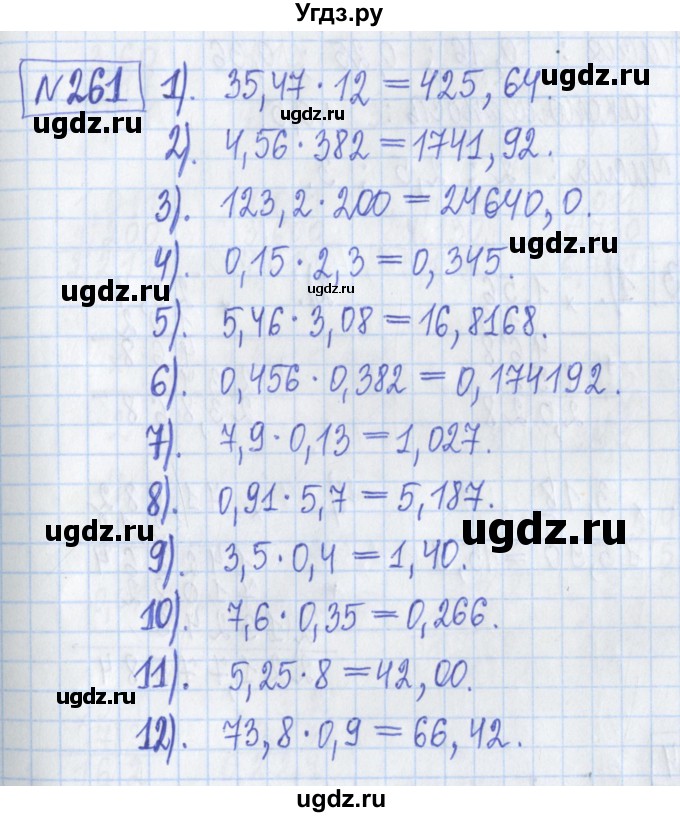 Угдз.ру
№261 1). 35,47 · 12 = 425,64.
ugdz.ru
ugdz.ru
2). 4,56 · 382 = 1741,92.
3). 123,2 · 200 = 24640,0.
ugdz.ru
4). 0,15 · 2,3 = 0,345.
ugdz.ru
ugdz.ru
5). 5,46 · 3,08 = 16,8168.
6). 0,456 · 0,382 = 0,174192.
7). 7,9 · 0,13 = 1,027.
8). 0,91 · 5,7 = 5,187.
ugdz.ru
ugdz.ru
9). 3,5 · 0,4 = 1,40.
10). 7,6 · 0,35 = 0,266.
11). 5,25 · 8 = 42,00.
ugdz.ru
12). 73,8 · 0,9 = 66,42.
ugdz.ru
ugdz.ru